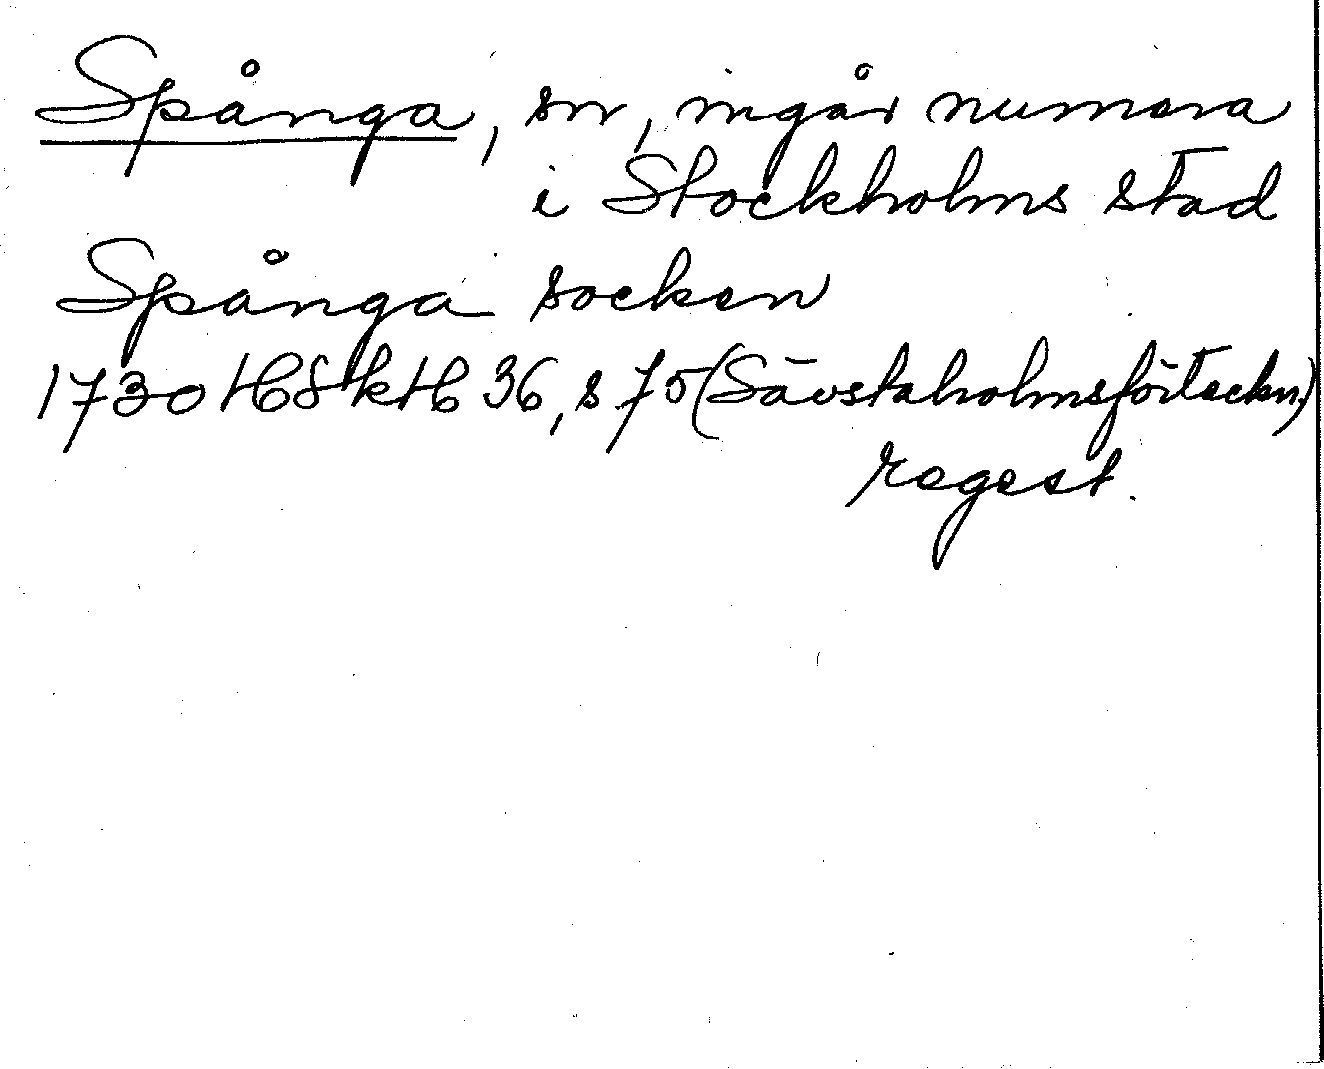 Spånga, sn, ingår numera
i Stockholms stad
Spånga socken
1730 HSkH 36, s 75 (Sävstaholmsförteckn.)
regest.